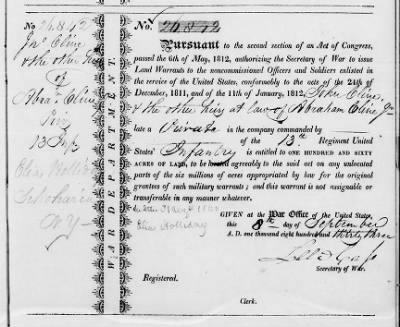 No 26842
Jno Cline
& the other heirs
of
Abra: Cline
13 Inf
Schoharie
NY
WAR DEPARTMENT
No. 26842
Pursuant to the second section of an Act of Congress,
passed the 6th of May, 1812, authorizing the Secretary of War to issue
Land Warrants to the noncommissioned Officers and Soldiers enlisted in
the service of the United States, conformably to the acts of the 24th of
December, 1811, and of the 11th of January, 1812, John Cline
& the other heirs at law of Abraham Cline
late a Private in the company commanded by
of the 13th Regiment United
States' Infantry is entitled to ONE HUNDRED AND SIXTY
ACRES OF LAND, to be located agreeably to the said act on any unlocated
parts of the six millions of acres appropriated by law for the original
grantees of such military warrants; and this warrant is not assignable or
transferable in any manner whatever.
Elias Holliday
GIVEN at the War Office of the United States,
this 8th day of September
A. D. one thousand eight hundred and thirty three
Lew Cass
Secretary of War.
Registered.
Clerk.